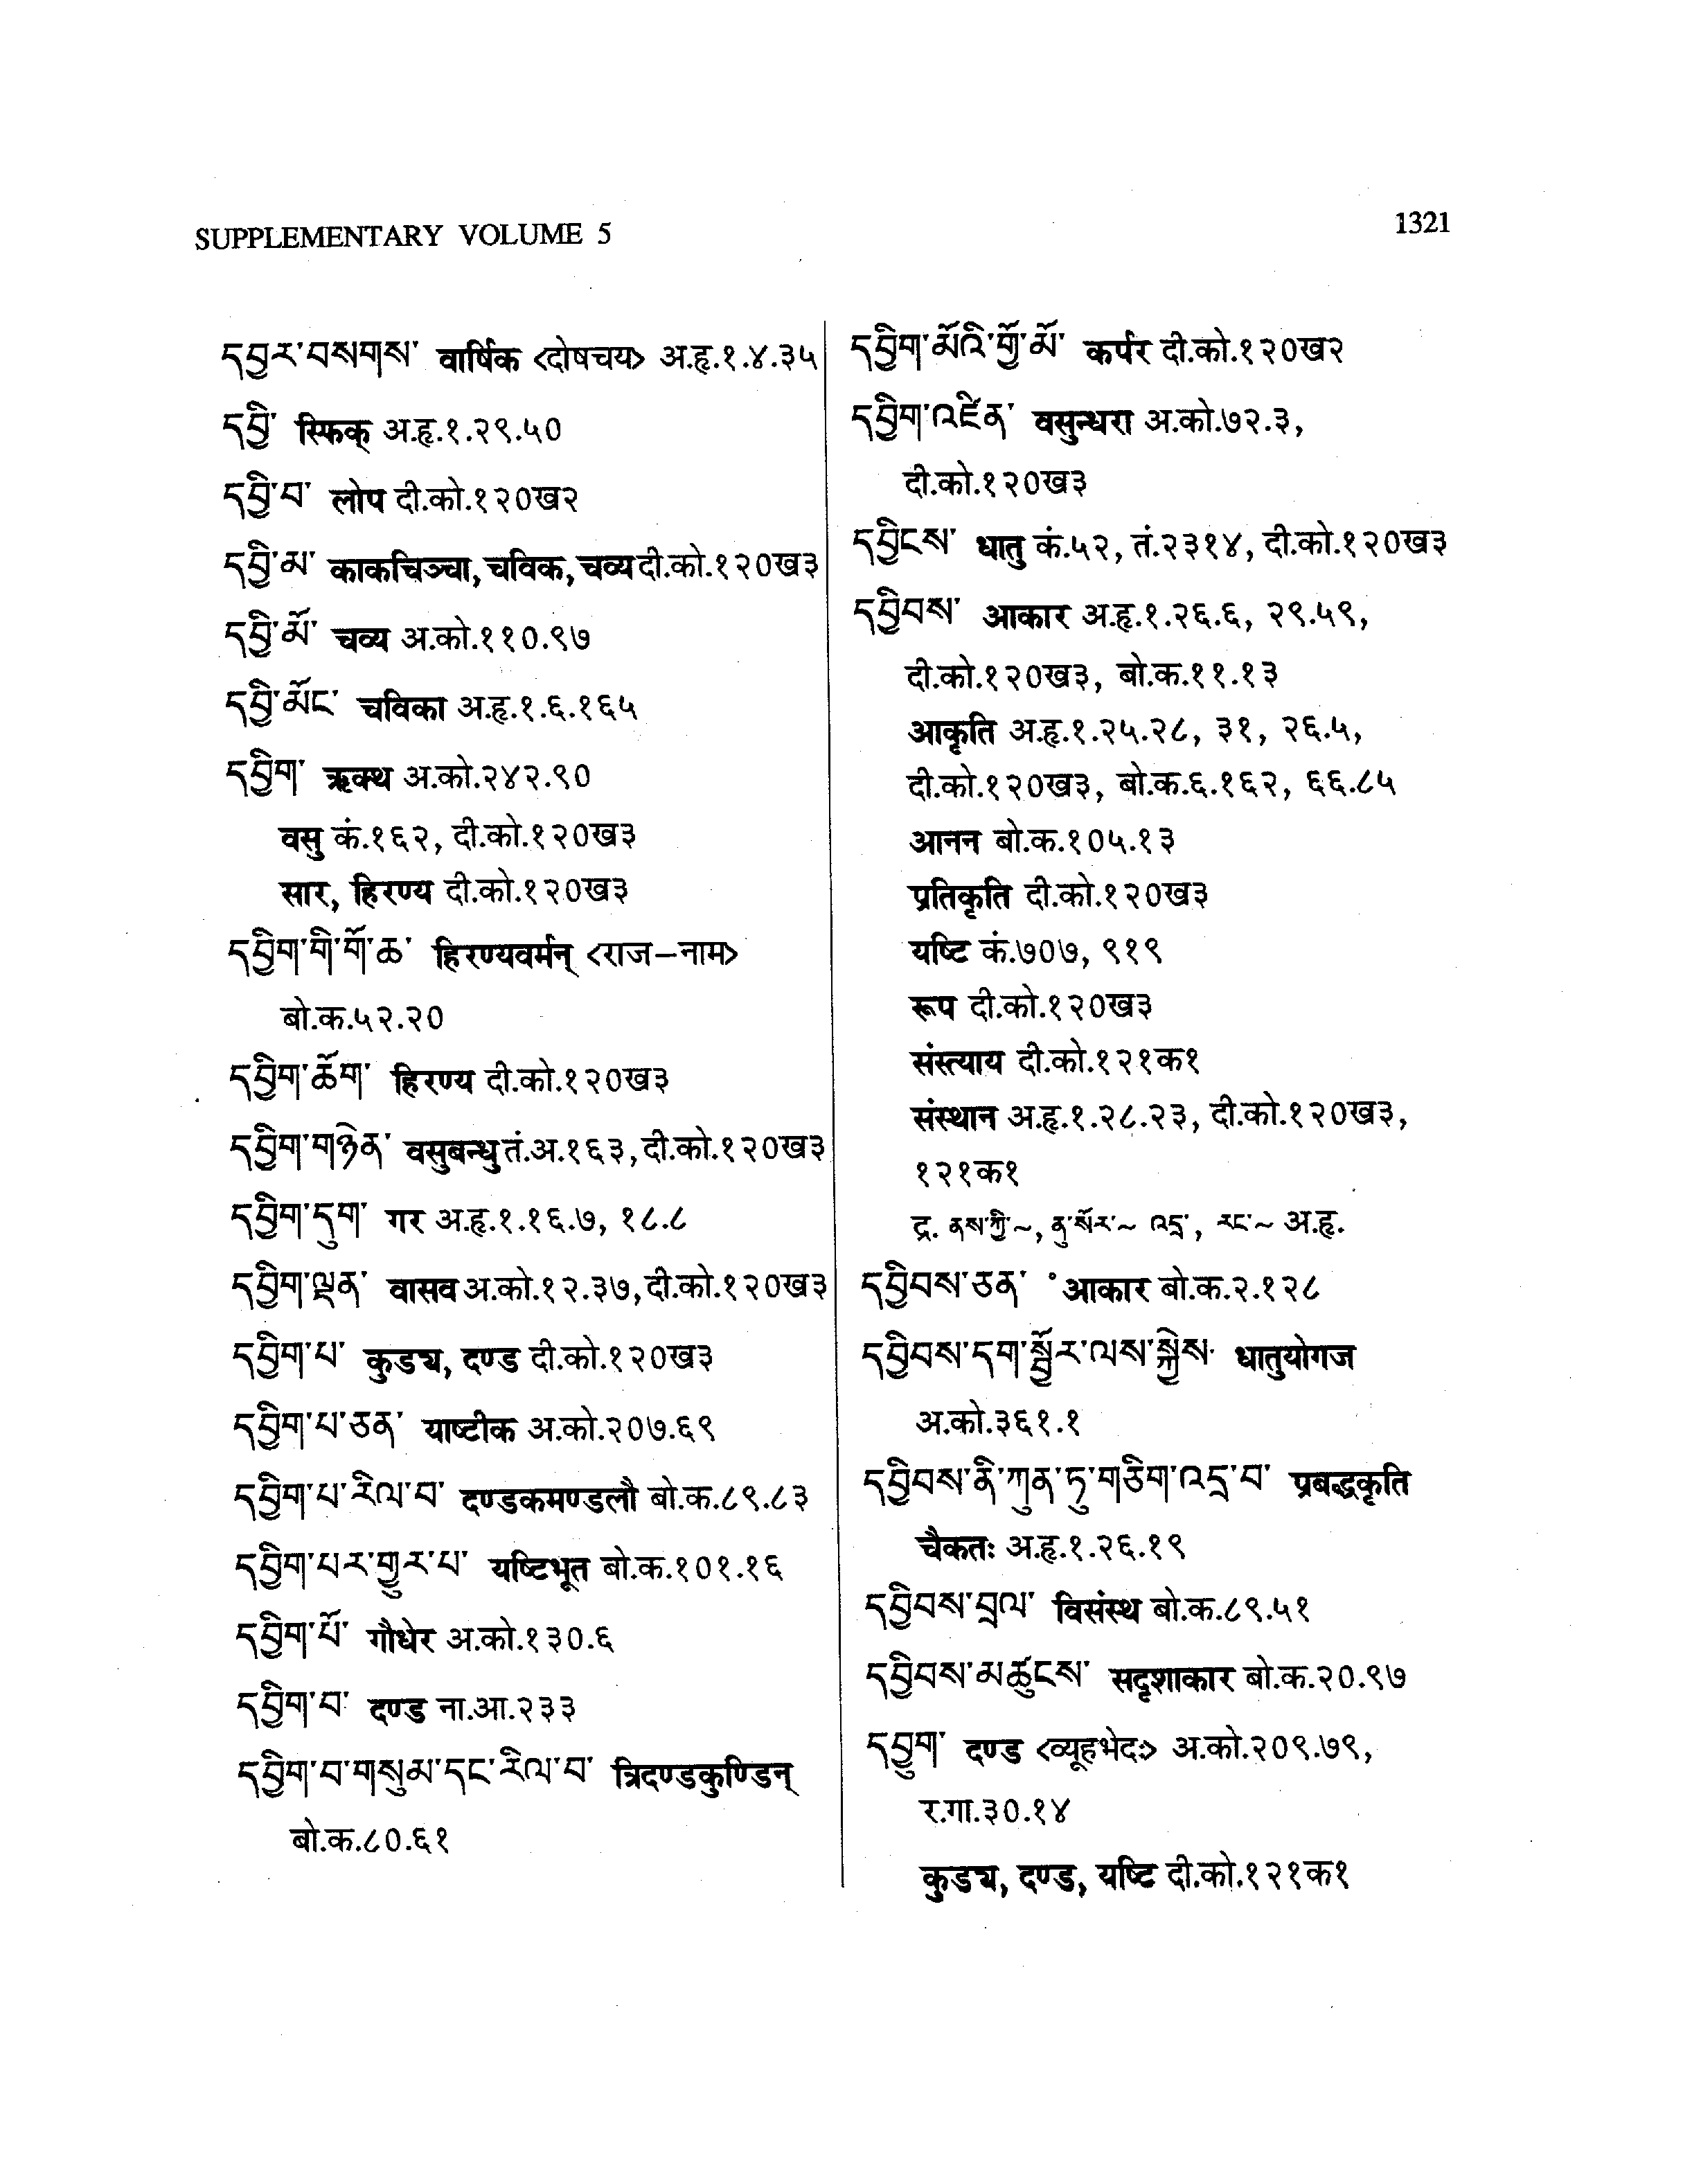 SUPPLEMENTARY VOLUME 5
1321
དབྱར་བསགས་ वार्षिक <दोषचय> अ.हृ.१.४.३५
དབྱི་ स्फिक् अ.हृ.१.२९.५०
དབྱི་བ་ लोप दी.को.१२०ख२
དབྱི་མ་ काकचिञ्चा, चविक, चव्य दी.को.१२०ख३
དབྱི་མོ་ चव्य अ.को.११०.९७
དབྱི་མོང་ चविका अ.हृ.१.६.१६५
དབྱིག་ ऋक्थ अ.को.२४२.९०
वसु कं.१६२, दी.को.१२०ख३
सार, हिरण्य दी.को.१२०ख३
དབྱིག་གི་གོ་ཆ་ हिरण्यवर्मन् <राज-नाम>
बो.क.५२.२०
དབྱིག་ཆོག་ हिरण्य दी.को.१२०ख३
དབྱིག་གཉེན་ वसुबन्धु तं.अ.१६३, दी.को.१२०ख३
དབྱིག་དུག་ गर अ.हृ.१.१६.७, १८.८
དབྱིག་ལྡན་ वासव अ.को.१२.३७, दी.को.१२०ख३
དབྱིག་པ་ कुड्य, दण्ड दी.को.१२०ख३
དབྱིག་པ་ཅན་ याष्टीक अ.को.२०७.६९
དབྱིག་པ་རིལ་བ་ दण्डकमण्डलौ बो.क.८९.८३
དབྱིག་པར་གྱུར་པ་ यष्टिभूत बो.क.१०१.१६
དབྱིག་པོ་ गौधेर अ.को.१३०.६
དབྱིག་བ་ दण्ड ना.आ.२३३
དབྱིག་བ་གསུམ་དང་རིལ་བ་ त्रिदण्डकुण्डिन्
बो.क.८०.६१
དབྱིག་མོའི་གྱོ་མོ་ कर्पर दी.को.१२०ख२
དབྱིག་འཛིན་ वसुन्धरा अ.को.७२.३,
दी.को.१२०ख३
དབྱིངས་ धातु कं.५२, तं.२३१४, दी.को.१२०ख३
དབྱིབས་ आकार अ.हृ.१.२६.६, २९.५९,
दी.को.१२०ख३, बो.क.११.१३
आकृति अ.हृ.१.२५.२८, ३१, २६.५,
दी.को.१२०ख३, बो.क.६.१६२, ६६.८५
आनन बो.क.१०५.१३
प्रतिकृति दी.को.१२०ख३
यष्टि कं.७०७, ९१९
रूप दी.को.१२०ख३
संस्त्याय दी.को.१२१क१
संस्थान अ.हृ.१.२८.२३, दी.को.१२०ख३,
१२१क१
द्र. ནས་ཀྱི་~, ནུ་སོར་~ འདྲ་, རང་~ अ.हृ.
དབྱིབས་ཅན་ °आकार बो.क.२.१२८
དབྱིབས་དག་སྦྱོར་ལས་སྐྱེས་ धातुयोगज
अ.को.३६१.१
དབྱིབས་ནི་ཀུན་ཏུ་གཅིག་འདྲ་བ་ प्रबद्धकृति
चैकतः अ.हृ.१.२६.१९
དབྱིབས་བྲལ་ विसंस्थ बो.क.८९.५१
དབྱིབས་མཚུངས་ सदृशाकार बो.क.२०.९७
དབྱུག་ दण्ड <व्यूहभेदः> अ.को.२०९.७९,
र.गा.३०.१४
कुड्य, दण्ड, यष्टि दी.को.१२१क१